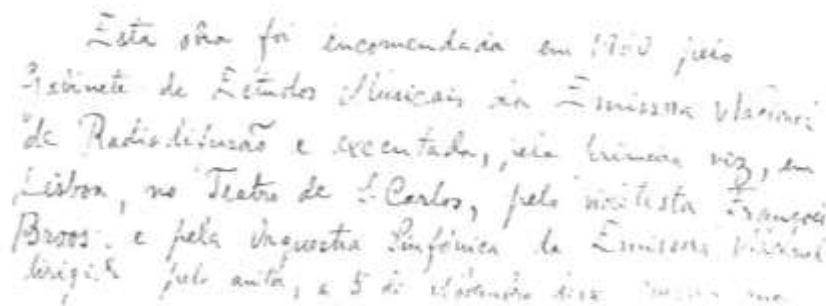 Esta obra foi encomendada em 19 0 pelo
Gabinete de Estudos Musicais da Emissora Nacional
de Radiodifusão e executada, pela primeira vez, em
Lisboa, no Teatro de S. Carlos, pelo violetista François
Broos e pela Orquestra Sinfónica da Emissora Nacional
dirigida pelo autor, a 5 de Novembro desse mesmo ano